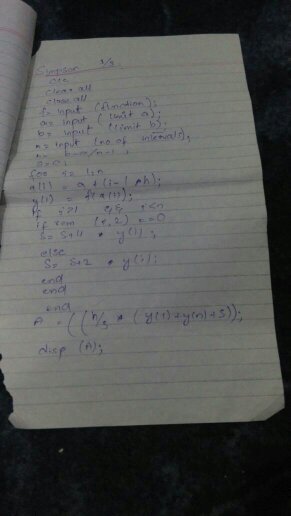 Simpson 1/3
clc
clear all
close all
f= input (function);
a= input ( limit a);
b= input (limit b);
n= input (no. of intervals);
h= b-a/n-1 ;
S=0;
for i= 1:n
x(i) = a + (i-1)*h);
y(i) = f(x(i));
if i>1 && i<n
if rem (i,2) ==0
S= S+4 * y(i) ;
else
S= S+2 * y(i);
end
end
end
A = ( ( h/3 * ( y(1)+y(n)+S));
disp (A);